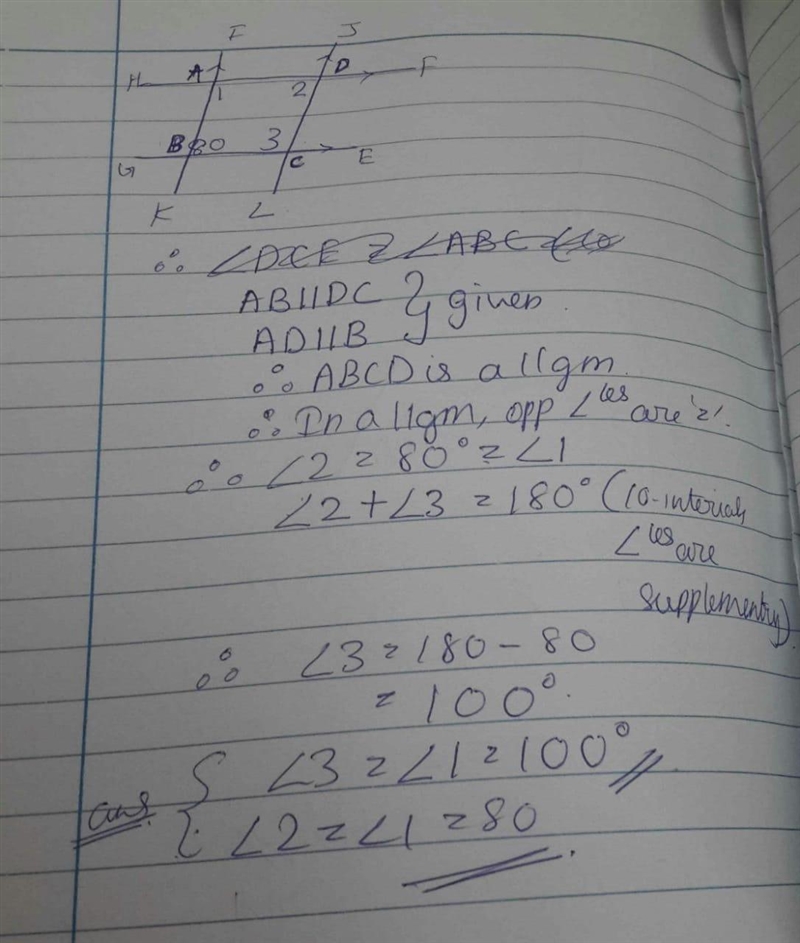 I J
H A D F
1 2
B 80 3
G C E
K L
∴ ∠DCE = ∠ABC (co
AB||DC } given
AD||B
∴ ABCD is a ||gm
∴ In a ||gm, opp ∠les are '='.
∴ ∠2 = 80° = ∠1
∠2 + ∠3 = 180° (co-interials
∠les are
supplementry).
∴ ∠3 = 180 - 80
= 100°.
ans. { ∠3 = ∠1 = 100°
∠2 = ∠1 = 80